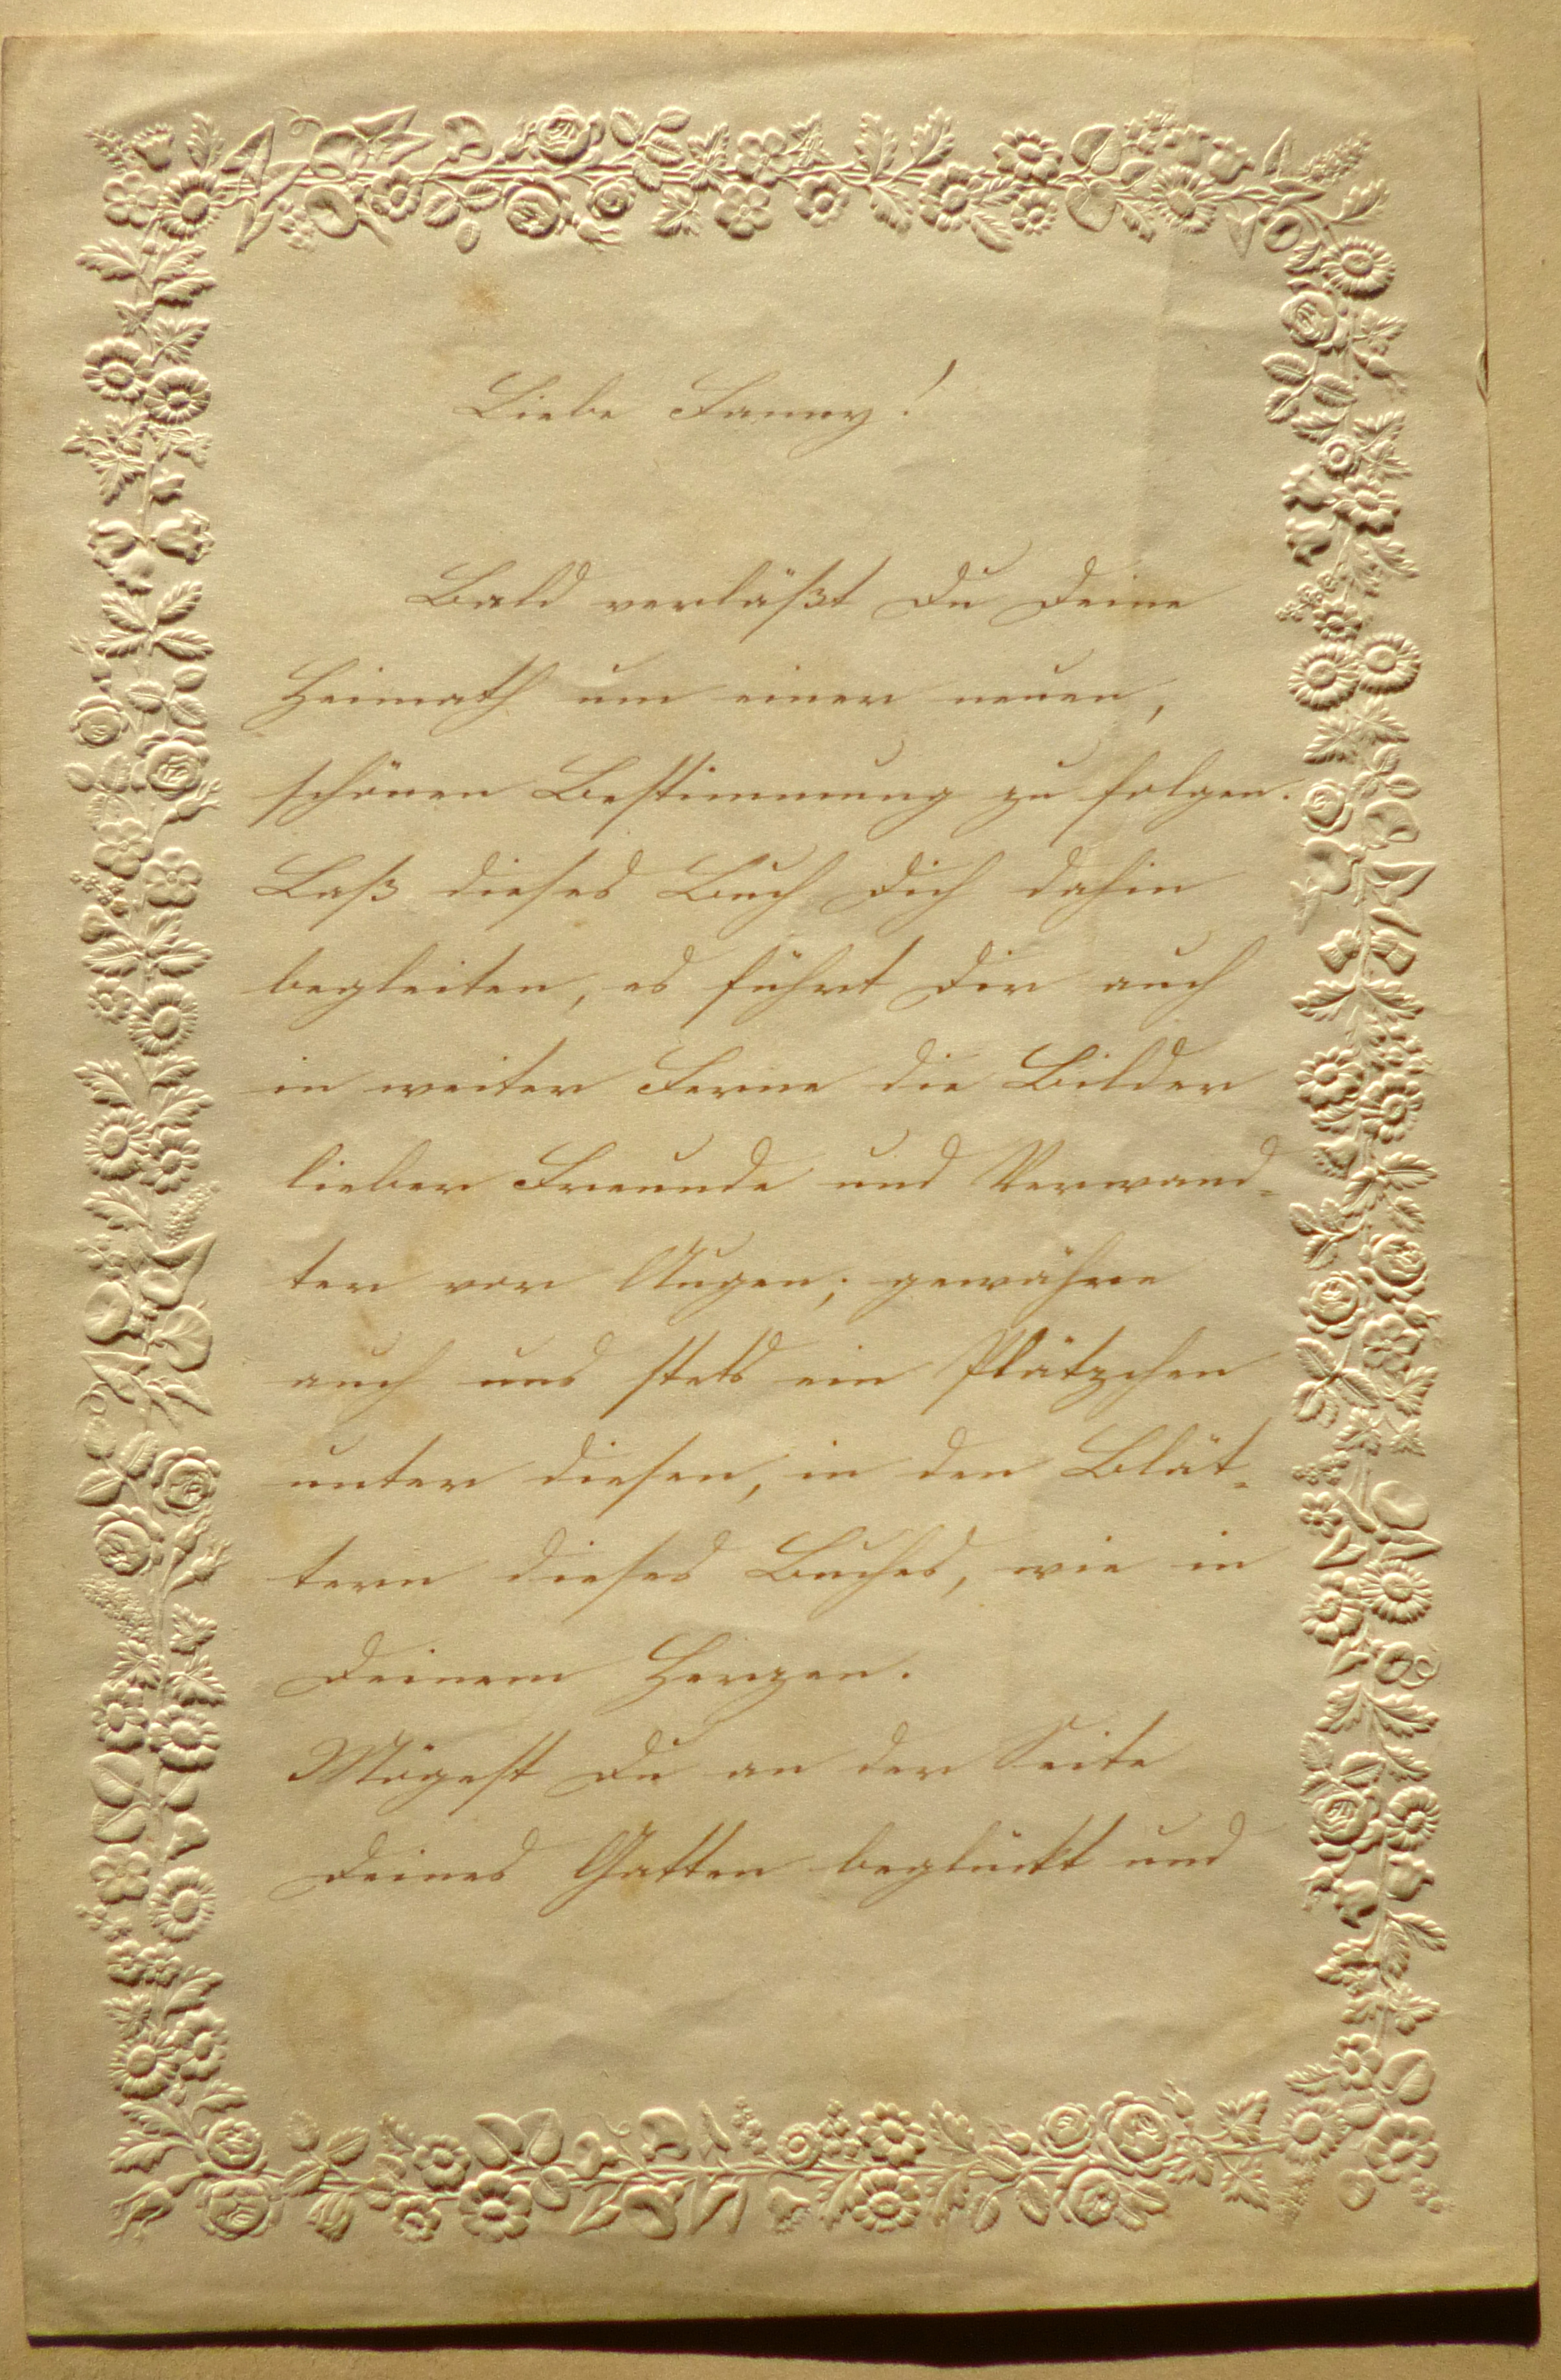 Liebe Fanny!
Bald verläßt Du Deine
Heimath um einer neuen,
schönen Bestimmung zu folgen.
Laß dieses Buch Dich dahin
begleiten, es führt Dir auch
in weiter Ferne die Bilder
lieber Freunde und Verwand-
ter vor Augen; gewähre
auch uns stets ein Plätzchen
unter diesen, in den Blät-
tern dieses Buches, wie in
Deinem Herzen.
Mögest Du an der Seite
Deines Gatten beglückt und